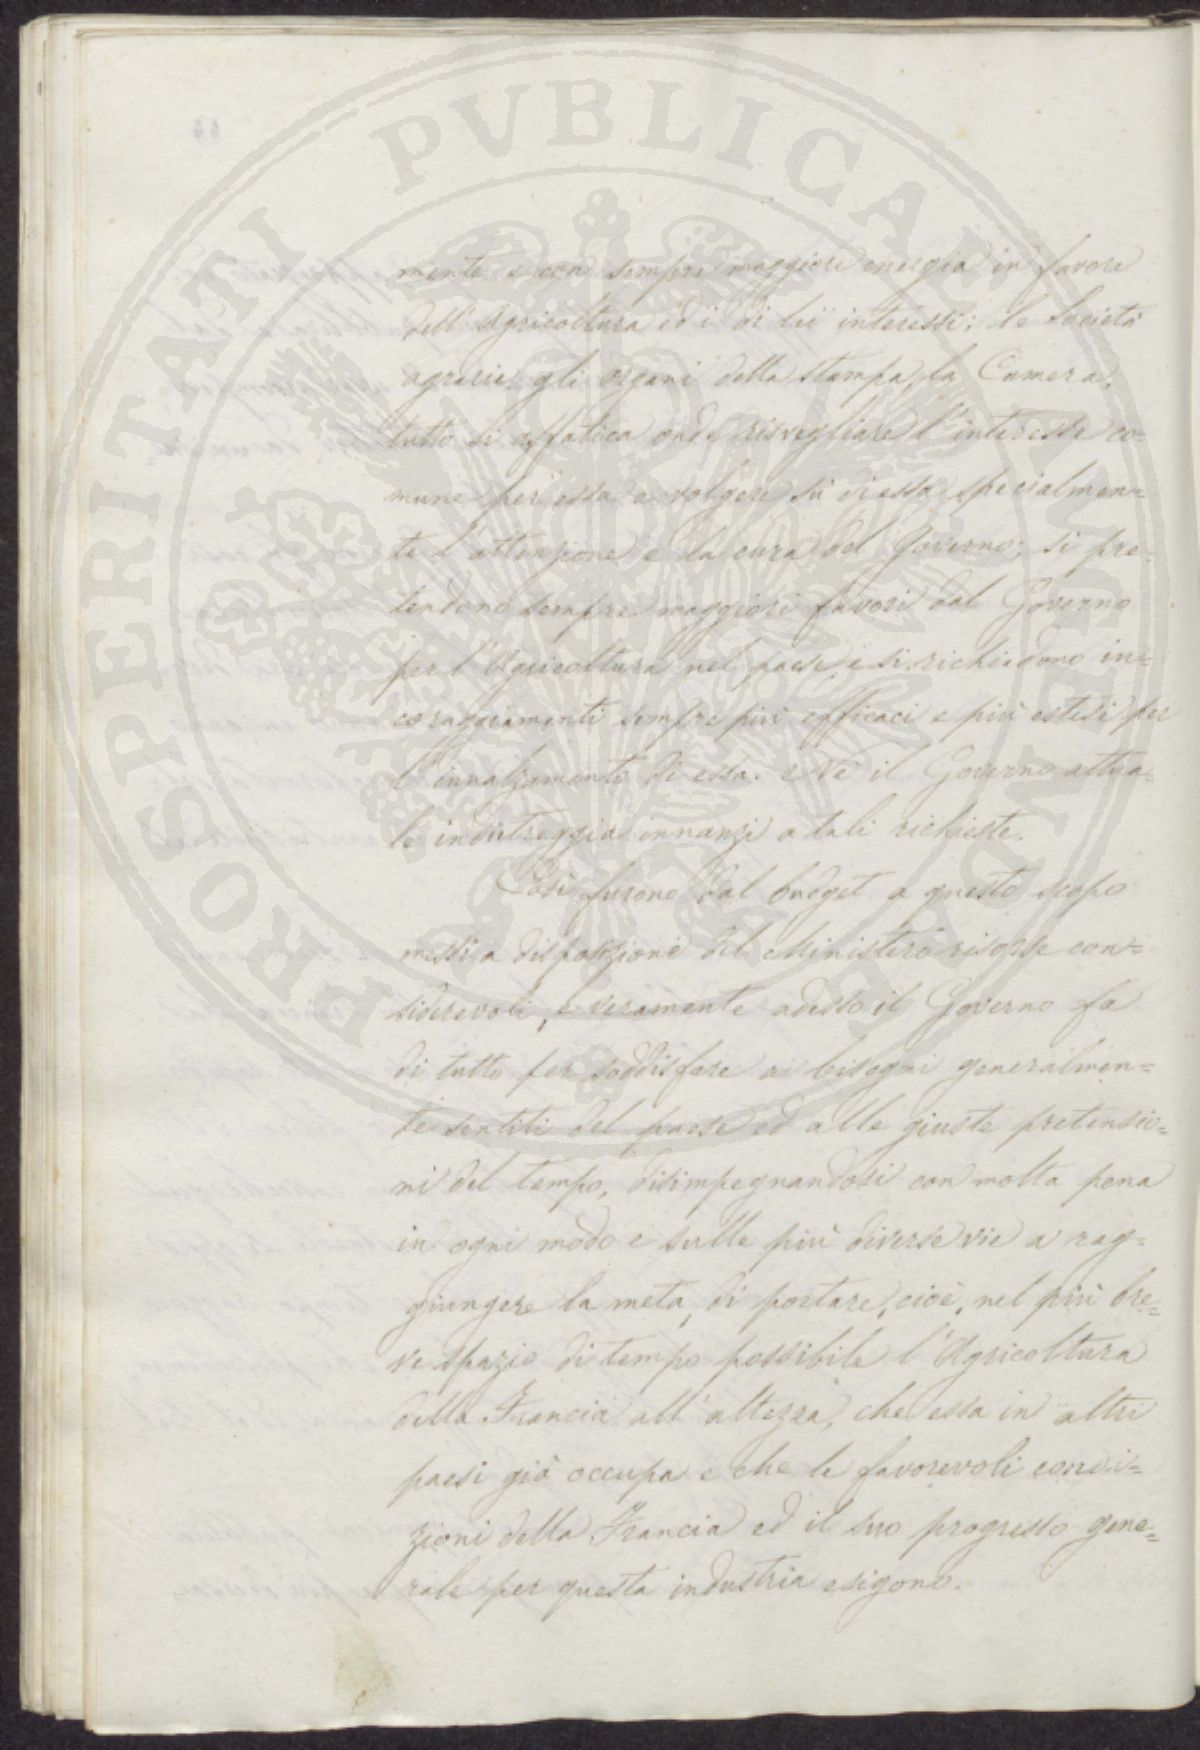 mente e con sempre maggiore energia in favore
dell'Agricoltura ed i di lei interessi; le Società
agrarie, gli organi della stampa, la Camera,
tutto si affatica onde risvegliare l'interesse co-
mune per essa e volgere su di essa specialmen=
te l'attenzione e la cura del Governo; si pre-
tendono sempre maggiori favori dal Governo
per l'Agricoltura nel paese e si richiedono in=
coraggiamenti sempre più efficaci e più estesi per
l'innalzamento di essa. Né il Governo attua-
le indietreggia innanzi a tali richieste.
Così furono dal budget a questo scopo
messi a disposizione del Ministero risorse con=
siderevoli, e veramente adesso il Governo fa
di tutto per soddisfare ai bisogni generalmen=
te sentiti del paese ed alle giuste pretensio=
ni del tempo, disimpegnandosi con molta pena
in ogni modo e sulle più diverse vie a rag-
giungere la meta, di portare, cioè, nel più bre=
ve spazio di tempo possibile l'Agricoltura
della Francia all'altezza, che essa in altri
paesi già occupa e che le favorevoli condi=
zioni della Francia ed il suo progresso gene=
rale per questa industria esigono.
PROSPERITATI PUBLICAE AUGENDAE